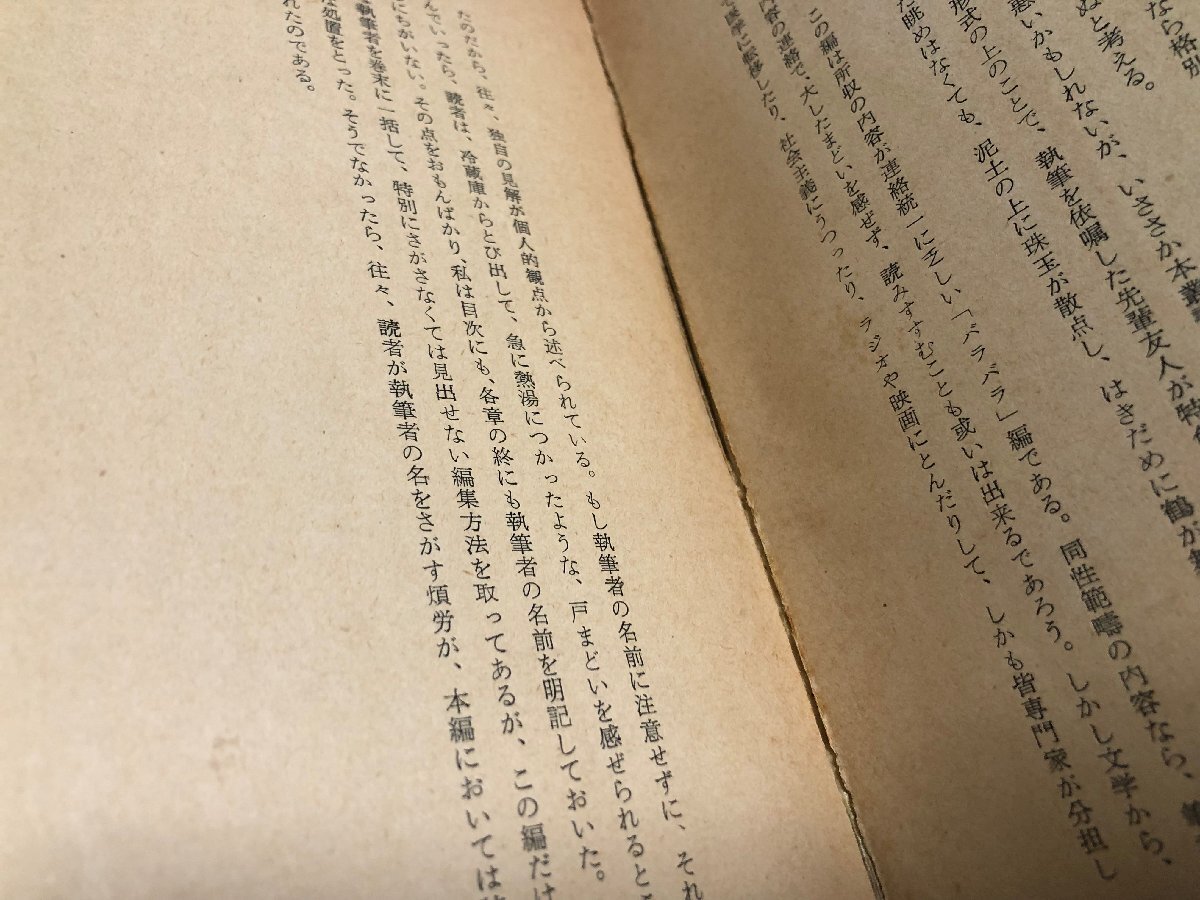 なら格別
ぬと考える。
悪いかもしれないが、いささか本叢
形式の上のことで、執筆を依嘱した先輩友人が特色
た眺めはなくても、泥土の上に珠玉が散点し、はきだめに鶴が
この編は所収の内容が連絡統一に乏しい「バラバラ」編である。同性範疇の内容なら、
内容の連絡で、大したまどいを感ぜず、読みすすむことも或いは出来るであろう。しかし文学から、
に転移したり、社会主義にうつったり、ラジオや映画にとんだりして、しかも皆専門家が分担し
たのだから、往々、独自の見解が個人的観点から述べられている。もし執筆者の名前に注意せずに、それ
んでいったら、読者は、冷蔵庫からとび出して、急に熱湯につかったような、戸まどいを感ぜられるとこ
にちがいない。その点をおもんぱかり、私は目次にも、各章の終にも執筆者の名前を明記しておいた。
執筆者を巻末に一括して、特別にさがさなくては見出せない編集方法を取ってあるが、この編だけ
な処置をとった。そうでなかったら、往々、読者が執筆者の名をさがす煩労が、本編においては
れたのである。